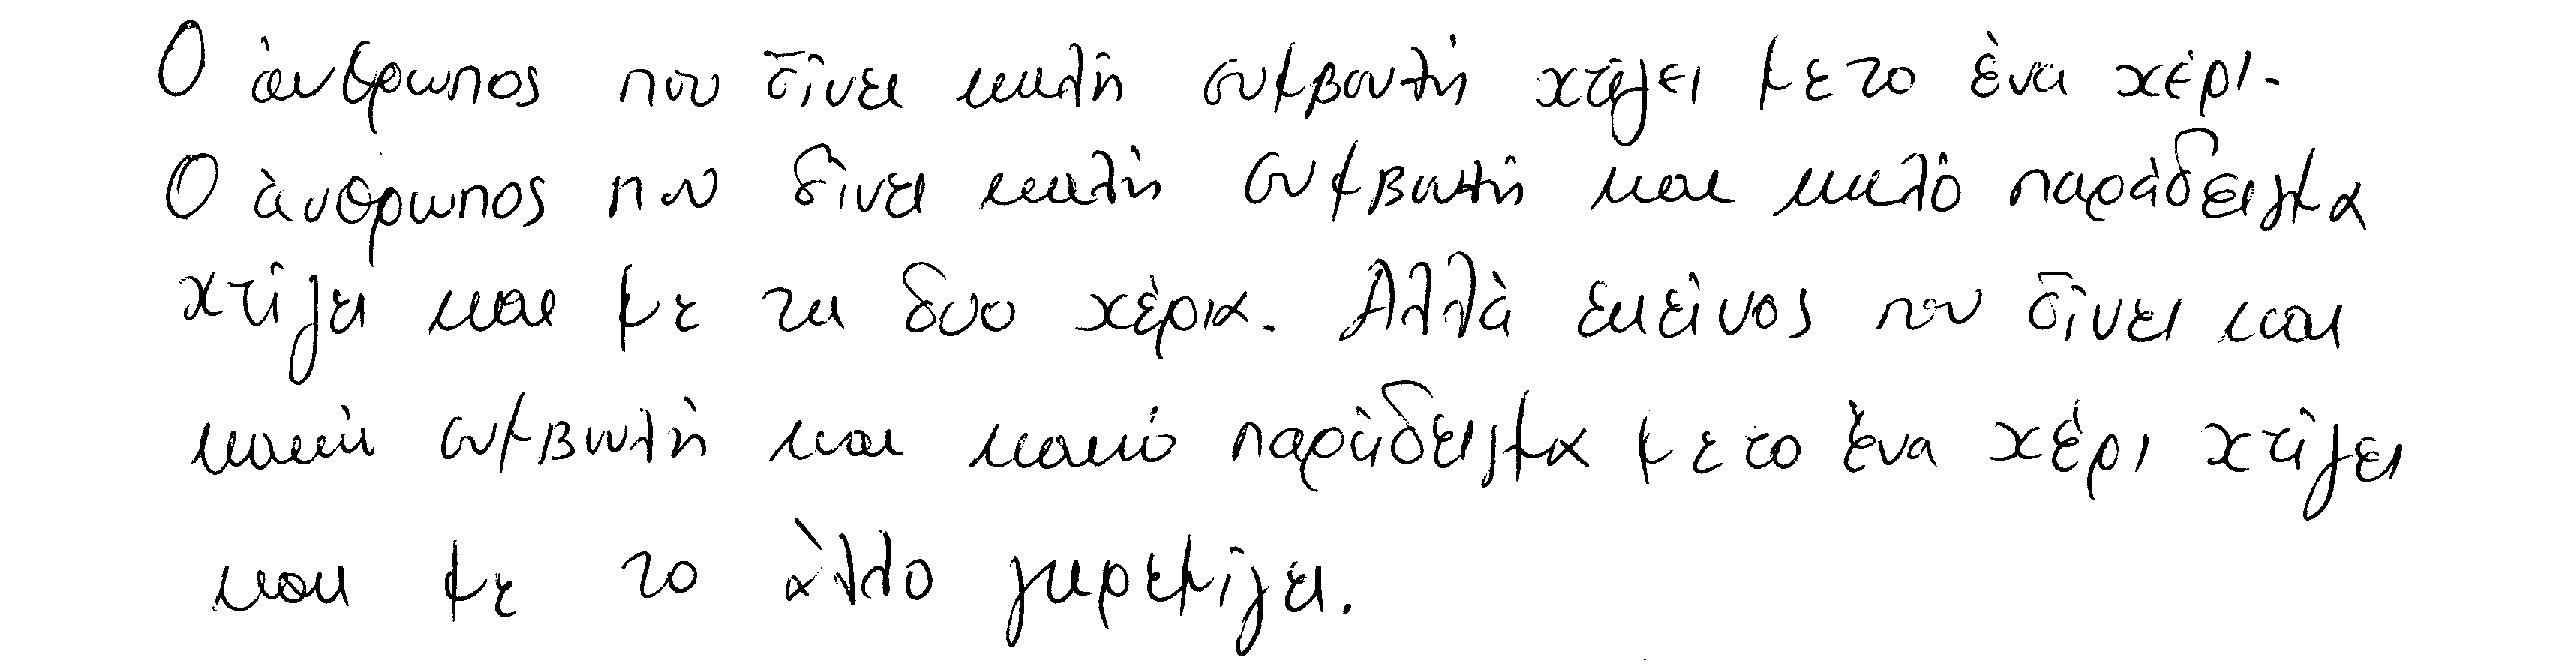 Ο άνθρωπος που δίνει καλή συμβουλή χτίζει με το ένα χέρι.
Ο άνθρωπος που δίνει καλή συμβουλή και καλό παράδειγμα
χτίζει και με τα δυο χέρια. Αλλά εκείνος που δίνει και
κακή συμβουλή και κακό παράδειγμα με το ένα χέρι χτίζει
και με το άλλο γκρεμίζει.